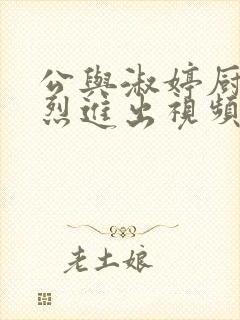 公與淑婷厨
烈進出視頻
老土娘